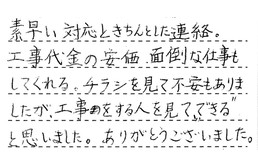 素早い対応ときちんとした連絡。
工事代金の安価、面倒な仕事も
してくれる。チラシを見て不安もありま
したが、工事をする人を見て〝できる〟
と思いました。ありがとうございました。